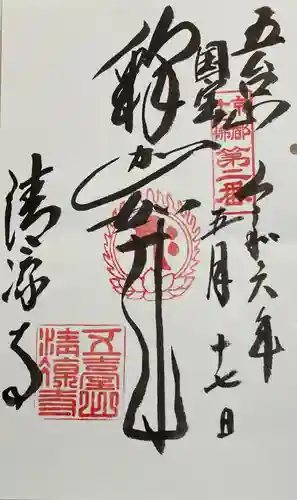 五台山
令和六年
五月
十七日
国宝
釈迦如来
清凉寺
京都
第二番
五臺山
清凉寺